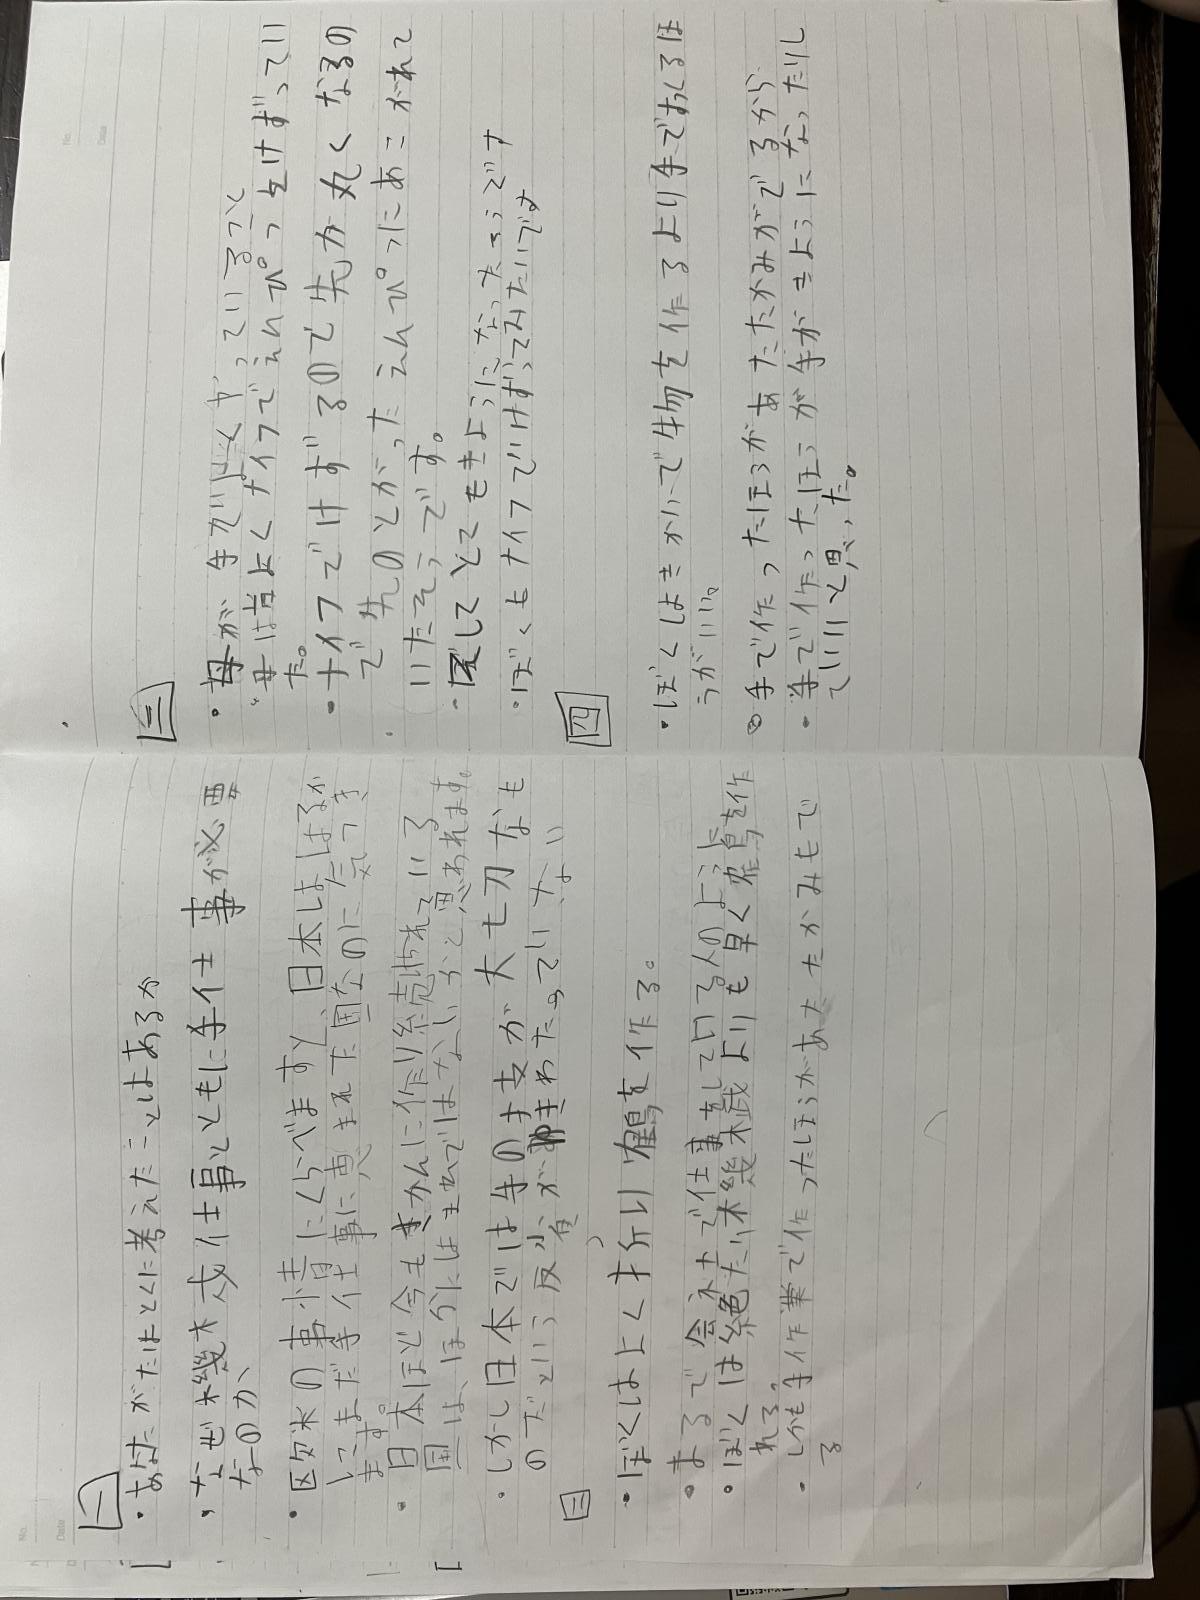 一
・あなたがたはとくに考えたことはあるか
・なぜ機械仕事とともに手仕事が必要
なのか、
・欧米の事情にくらべますと、日本ははるか
にまだ手仕事に恵まれた国なのに気つき
ます。
・日本ほど今もさかんに作り続けられている
国は、ほかにはまれではないかと思われます。
・しかし日本では手の技が大切なも
のだという反省がゆきわたっていない
二
・ぼくはよく折り鶴を作る。
・まるで会社で仕事をしている人のように
・ぼくは絶たい機械よりも早く鶴を作
れる。
・しかも手作業で作ったほうがあたたかみもで
る
三
・母が手がよくやっているつと
・母は昔よくナイフでえんぴつをけずってい
た。
・ナイフでけずるので先が丸くなるの
で先のとがったえんぴつにあこがれて
いたそうです。
・そしてとてもきように なったそうです
・ぼくもナイフでけずってみたいです
四
・ぼくはきかいで生物を作るより手でおくるほ
うがいい。
・手で作ったほうがあたたかみがでるから
・手で作ったほうが手がきようになったりし
ていいと思った。
No.
Date
No.
Date